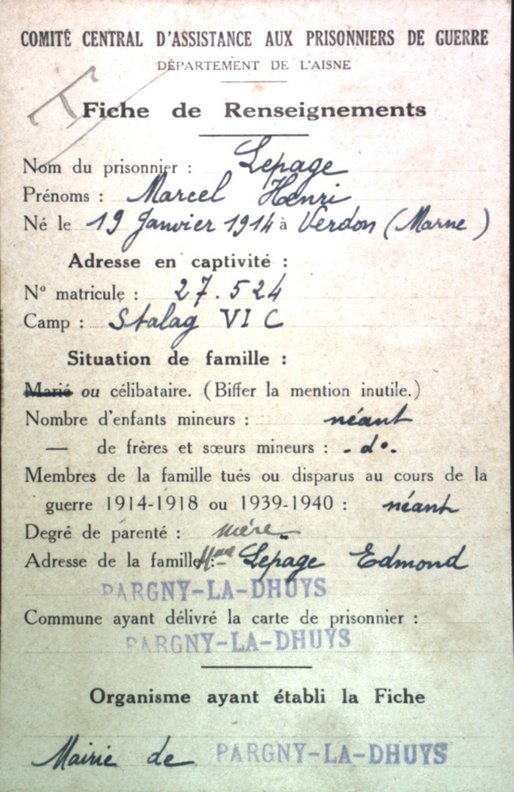 COMITÉ CENTRAL D'ASSISTANCE AUX PRISONNIERS DE GUERRE
DÉPARTEMENT DE L'AISNE
Fiche de Renseignements
Nom du prisonnier : Lepage
Prénoms : Marcel Henri
Né le 19 Janvier 1914 à Verdon (Marne)
Adresse en captivité :
N° matricule : 27.524
Camp : Stalag VI C
Situation de famille :
Marié ou célibataire. (Biffer la mention inutile.)
Nombre d'enfants mineurs : néant
— de frères et sœurs mineurs : - d° -
Membres de la famille tués ou disparus au cours de la
guerre 1914-1918 ou 1939-1940 : néant
Degré de parenté : mère
Adresse de la famille : Mme Lepage Edmond
PARGNY-LA-DHUYS
Commune ayant délivré la carte de prisonnier :
PARGNY-LA-DHUYS
Organisme ayant établi la Fiche
Mairie de PARGNY-LA-DHUYS